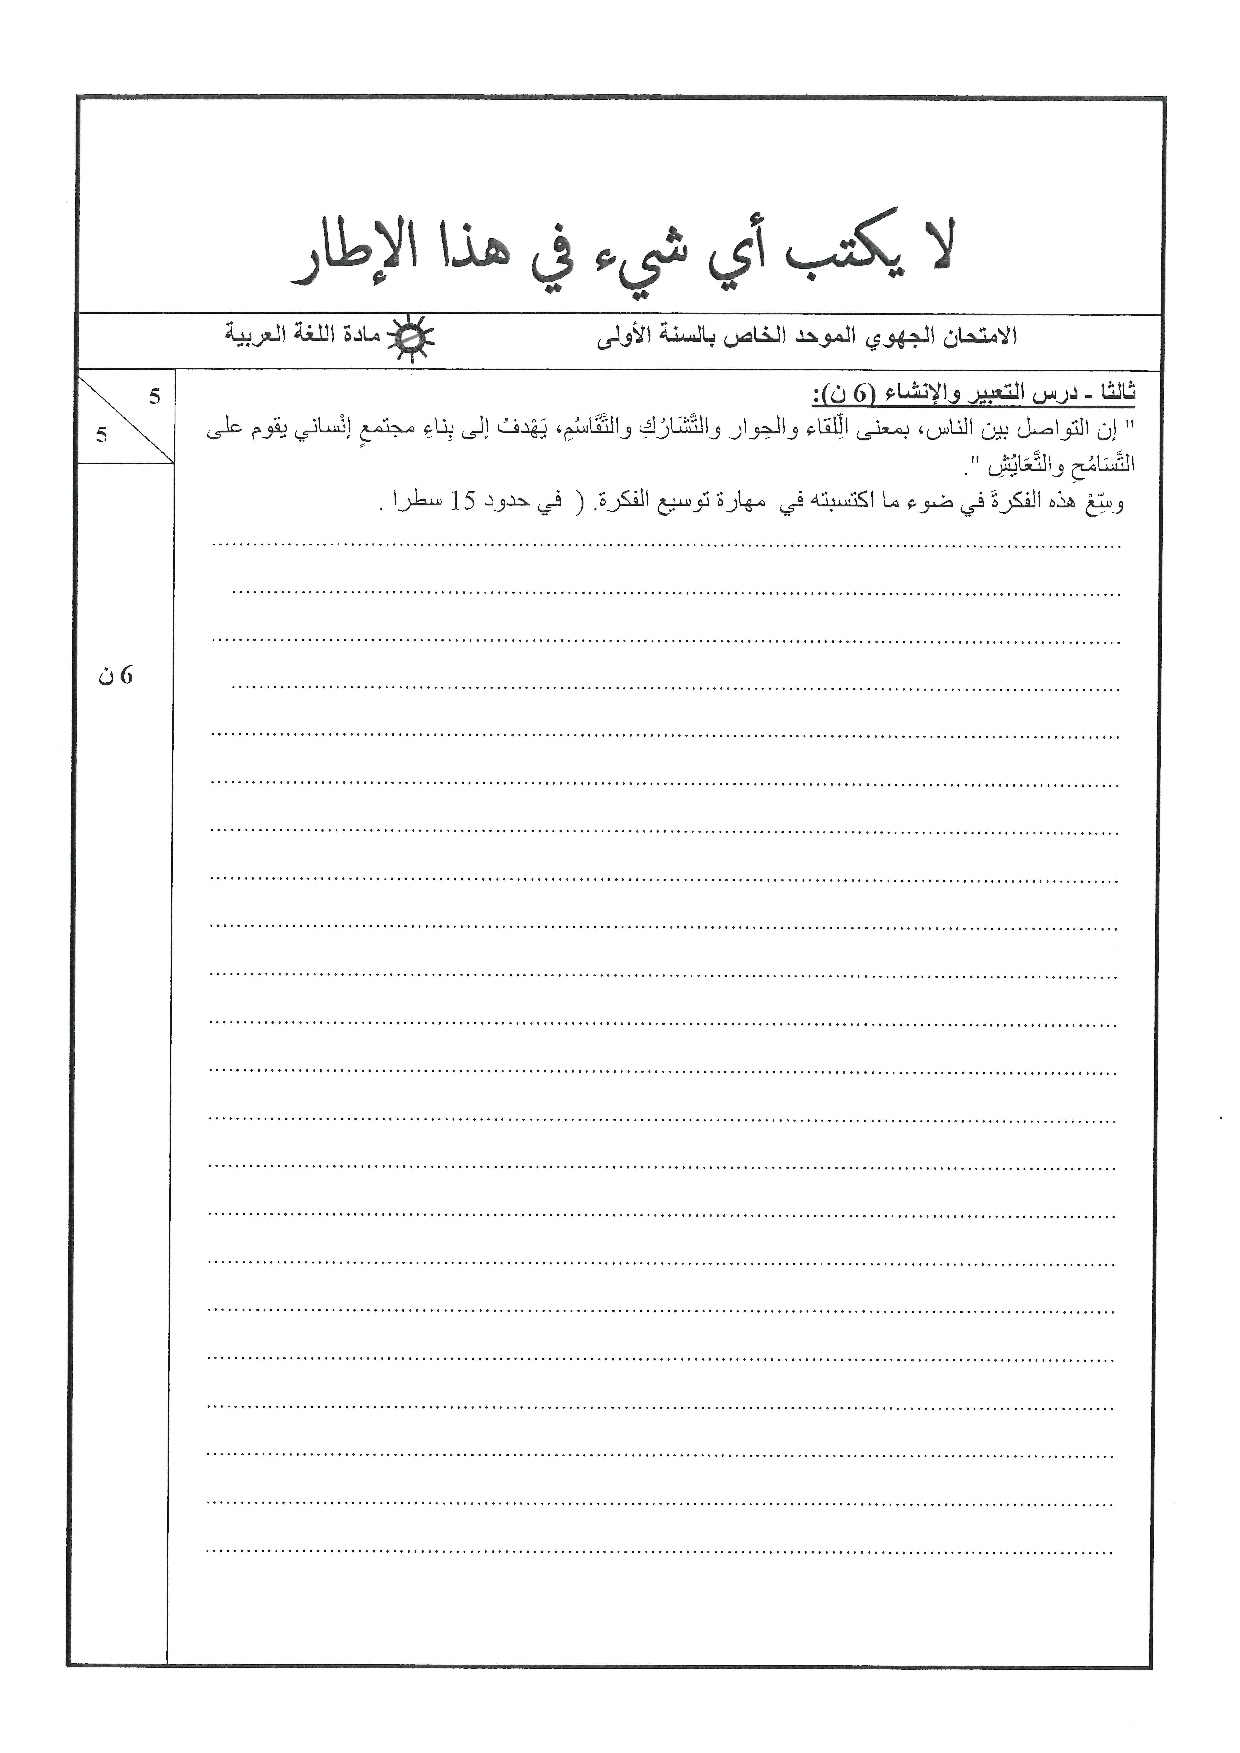 لا يكتب أي شيء في هذا الإطار
الامتحان الجهوي الموحد الخاص بالسنة الأولى مادة اللغة العربية
5
5
ثالثا - درس التعبير والإنشاء (6 ن):
" إن التواصل بين الناس، بمعنى اللِّقاء والحِوار والتَّشَارُكِ والتَّقَاسُمِ، يَهْدفُ إلى بِناءِ مجتمعٍ إنْساني يقوم على
التَّسَامُحِ والتَّعَايُشِ ".
وسِّعْ هذه الفكرةَ في ضوء ما اكتسبته في مهارة توسيع الفكرة. ( في حدود 15 سطرا .
6 ن